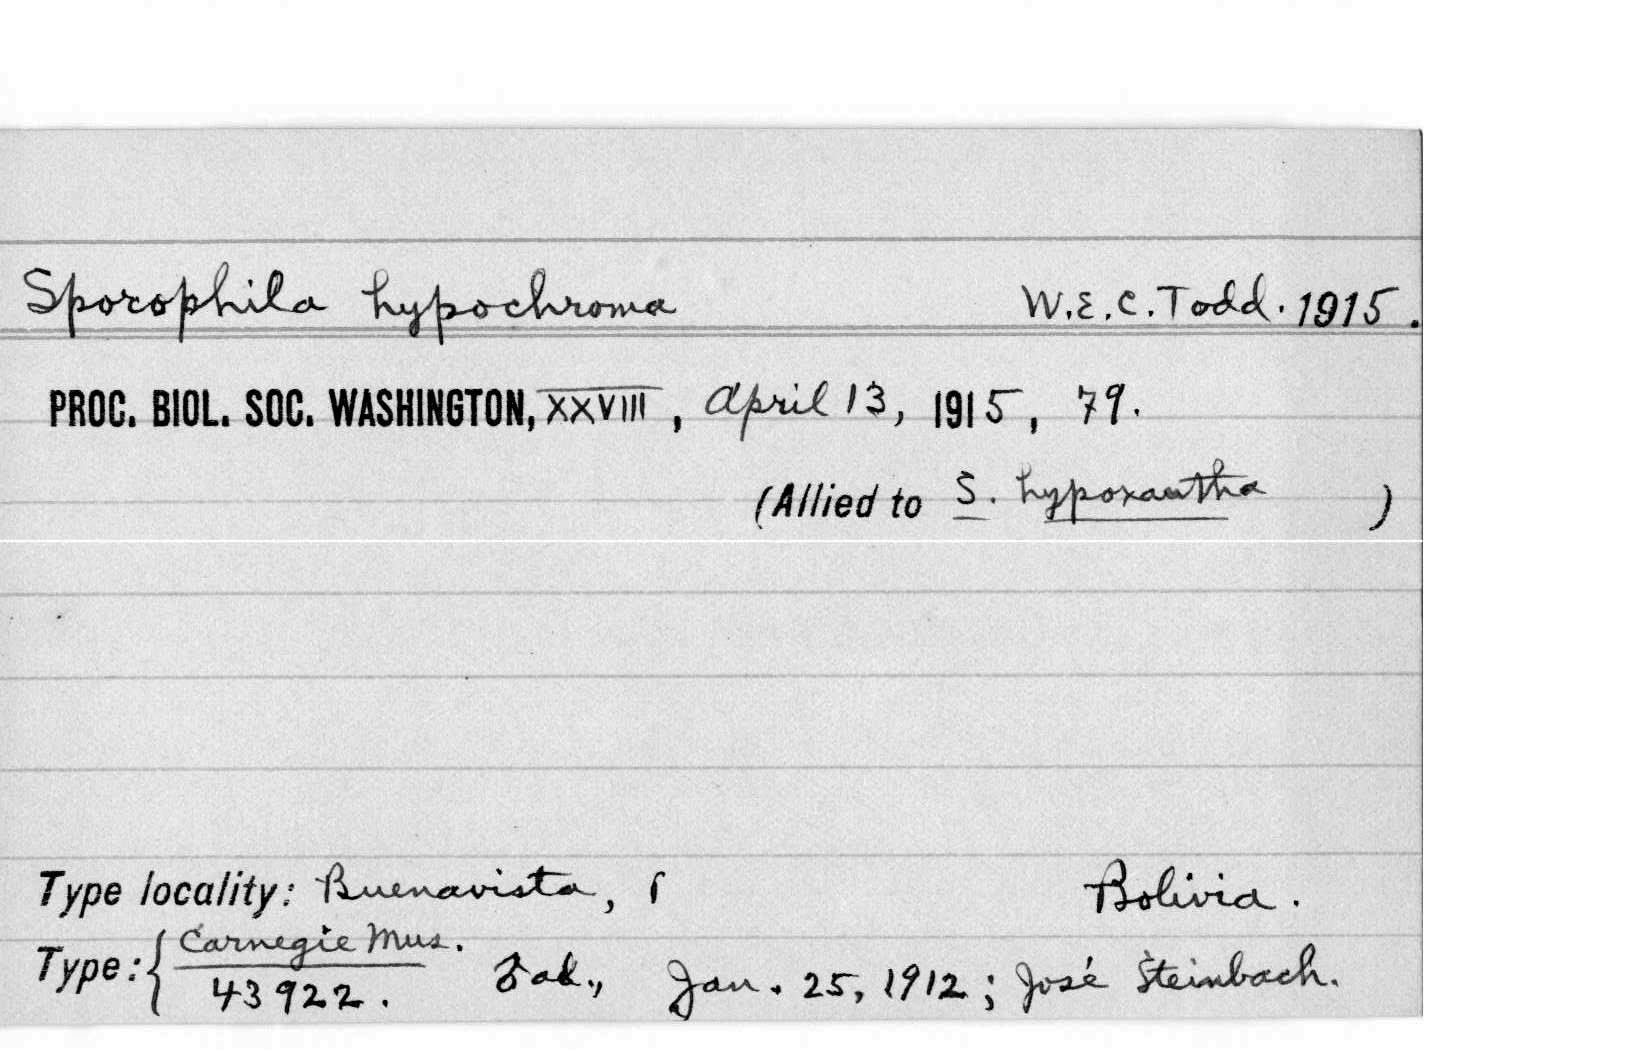 Sporophila hypochroma W.E.C. Todd. 1915.
PROC. BIOL. SOC. WASHINGTON, XXVIII, April 13, 1915, 79.
(Allied to S. hypoxantha )
Type locality: Buenavista, Bolivia.
Type: { Carnegie Mus.
43922. ad., Jan. 25, 1912; José Steinbach.